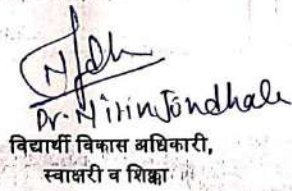 Dr. Nitin Jondhale
विद्यार्थी विकास अधिकारी,
स्वाक्षरी व शिक्का